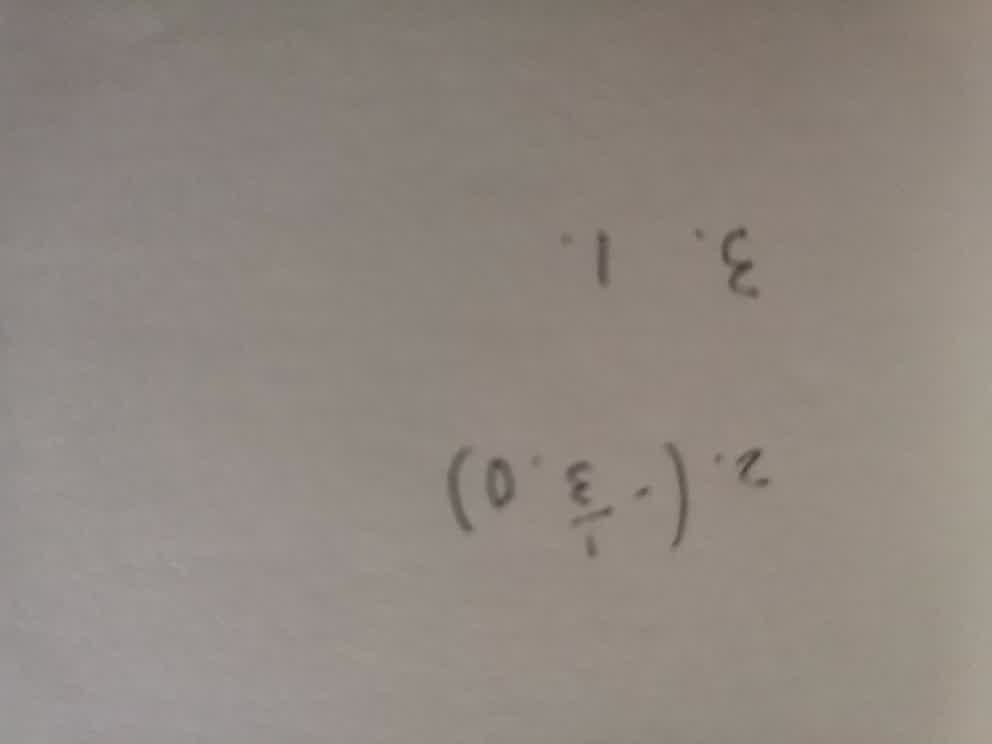 2. (-1/3, 0)
3. 1.